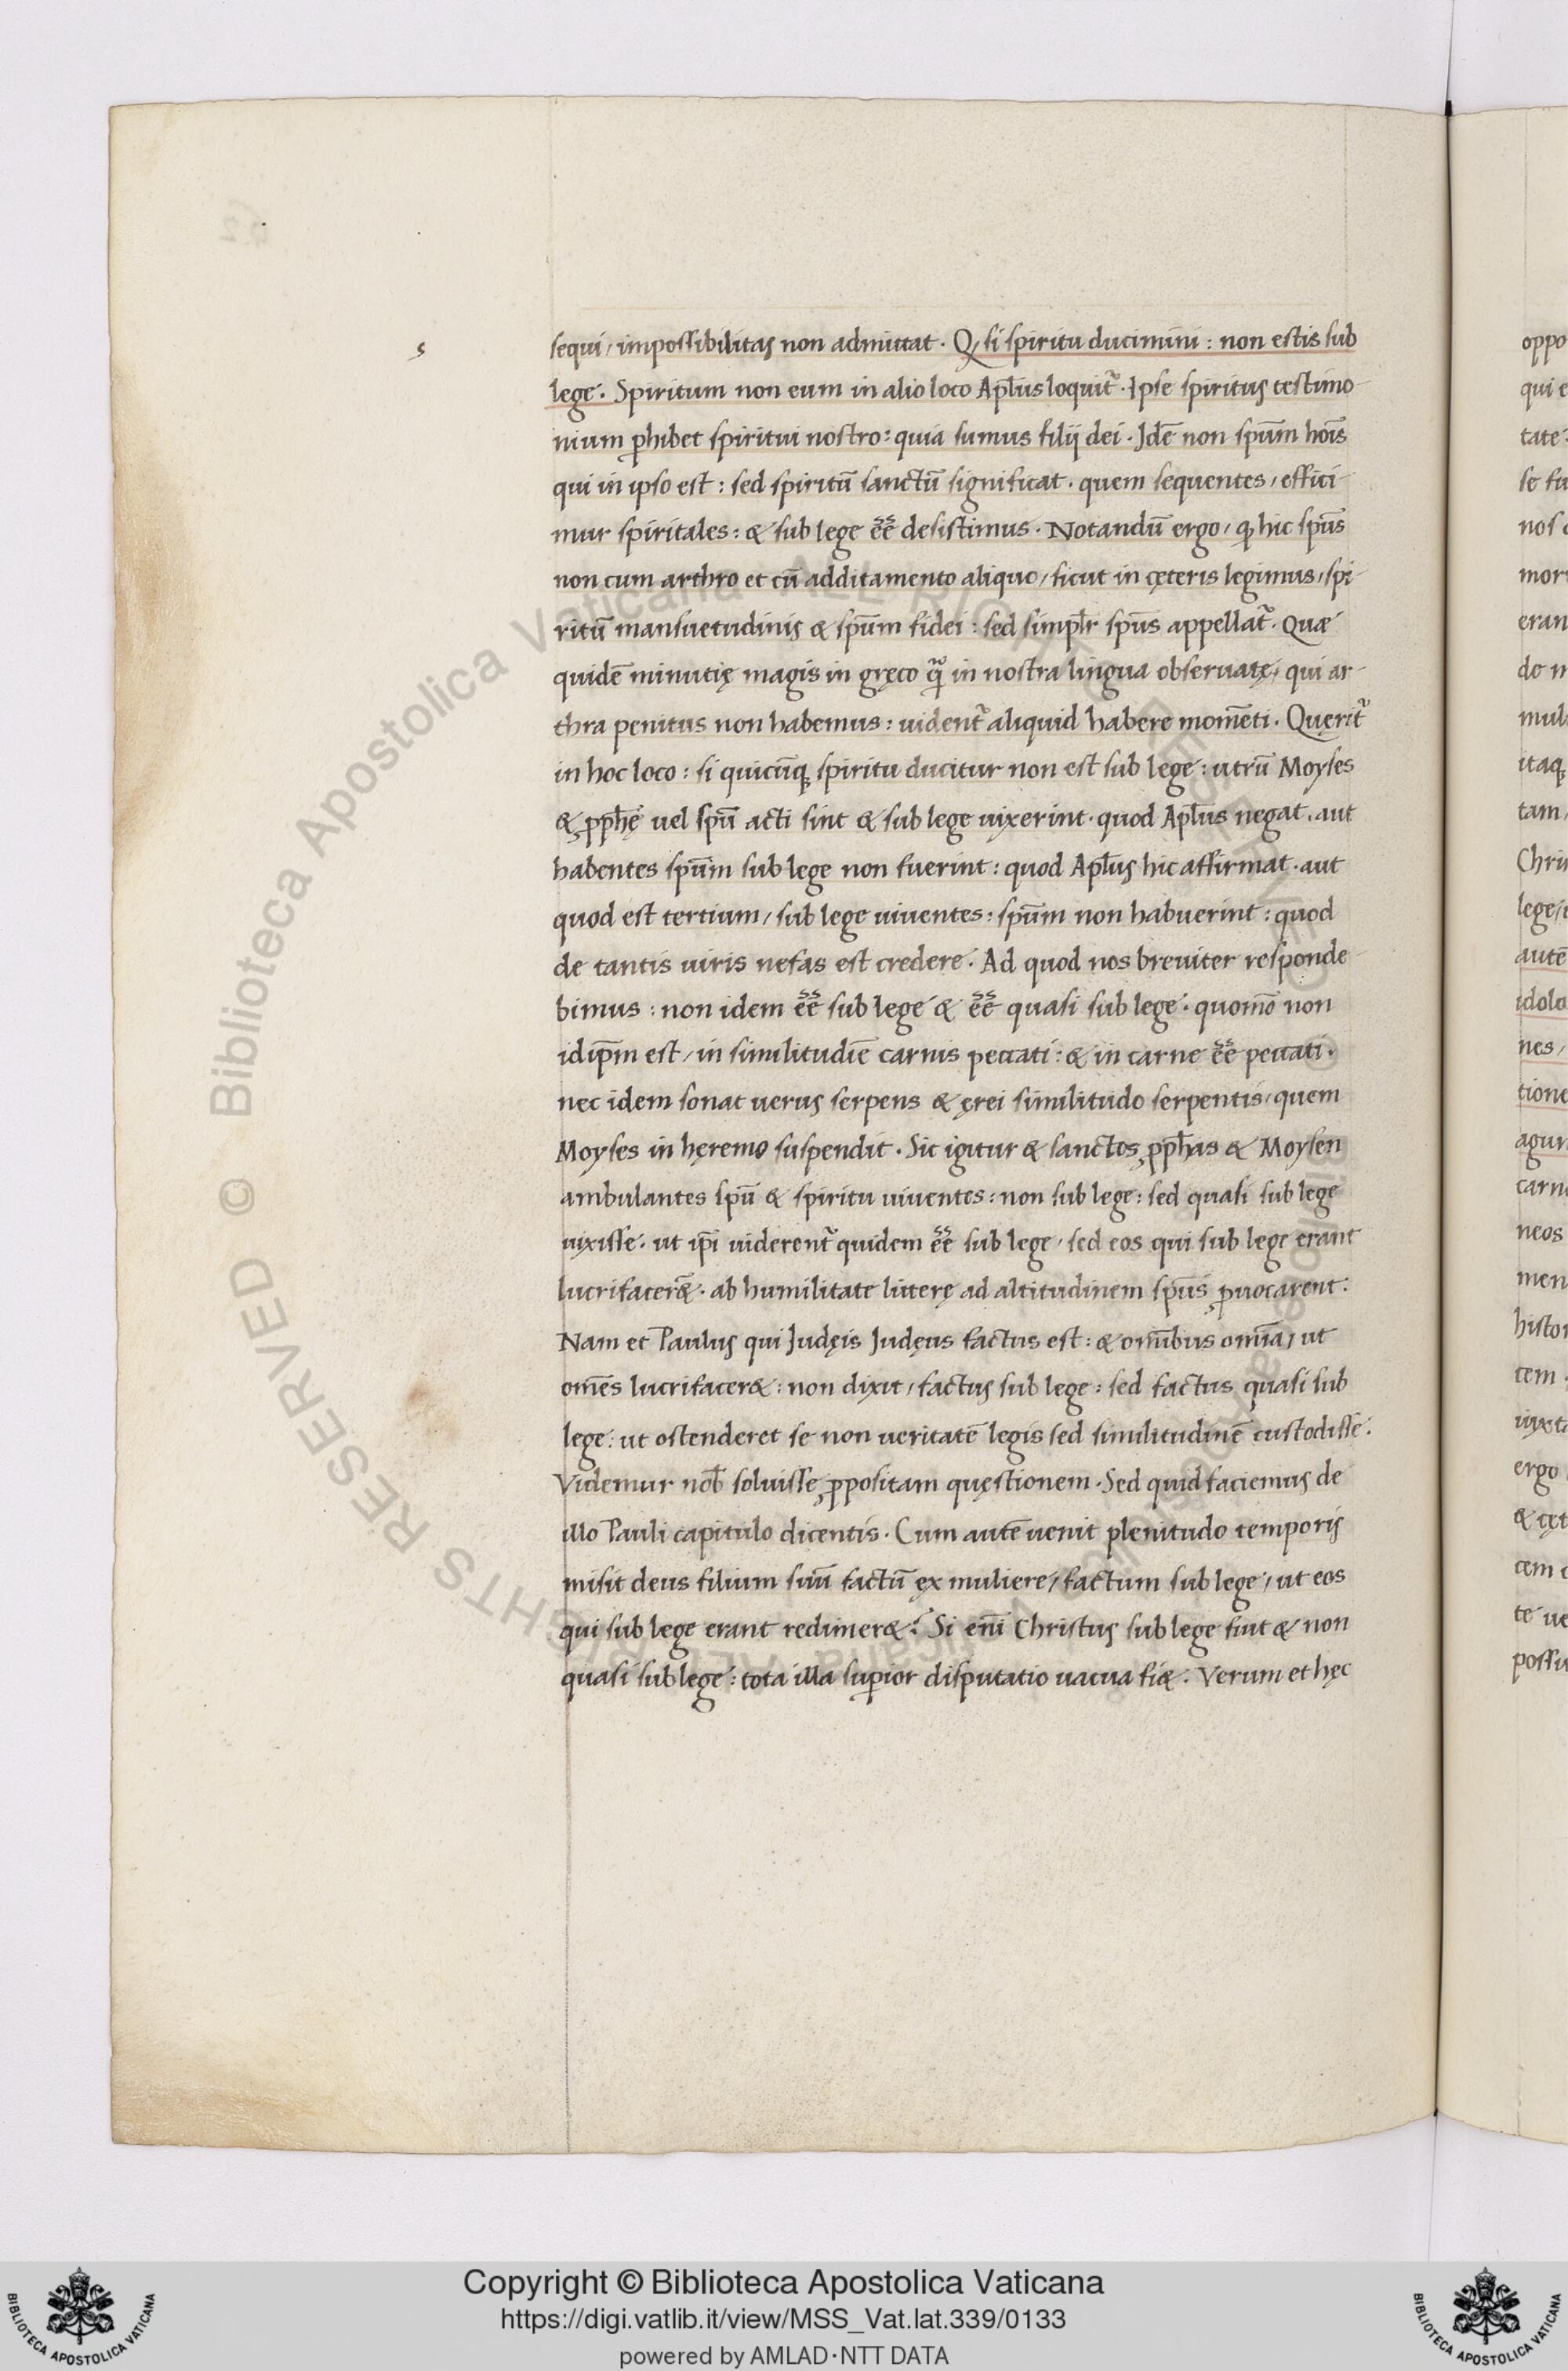 sequi, impossibilitas non admittat. Q, si spiritu ducimini: non estis sub
lege. Spiritum non eum in alio loco Apl̄us loquit᷑. Ipse spiritus testimo-
nium p̱hibet spiritui nostro: quia sumus filij dei. Idē non spūm hoīs
qui in ipso est: sed spiritū sanctū significat. quem sequentes, effici-
mur spiritales: & sub lege ēē desistimus. Notandū ergo, ꝙ hic spūs
non cum arthro et cū additamento aliquo, sicut in cęteris legimus, spi-
ritū mansuetudinis & spūm fidei: sed simpl̄r spūs appellat᷑. Quæ
quidē minutię magis in gręco q̃ in nostra lingua obseruatę, qui ar-
thra penitus non habemus: uident᷑ aliquid habere momēti. Querit᷑
in hoc loco: si quicūq; spiritu ducitur non est sub lege: utrū Moyses
& ꝓph̄ę uel spū acti sint & sub lege uixerint. quod Apl̄us negat. aut
habentes spūm sub lege non fuerint: quod Apl̄us hic affirmat. aut
quod est tertium, sub lege uiuentes: spūm non habuerint: quod
de tantis uiris nefas est credere. Ad quod nos breuiter responde-
bimus: non idem ēē sub lege & ēē quasi sub lege. quomō non
idip̄m est, in similitudiē carnis peccati: & in carne ēē peccati.
nec idem sonat uerus serpens & ęrei similitudo serpentis, quem
Moyses in hęremo suspendit. Sic igitur & sanctos ꝓph̄as & Moysen
ambulantes spū & spiritu uiuentes: non sub lege: sed quasi sub lege
uixisse. ut ip̄i uiderent᷑ quidem ēē sub lege, sed eos qui sub lege erant
lucrifacer&̄. ab humilitate litterę ad altitudinem spūs ꝓuocarent.
Nam et Paulus qui Judęis Judęus factus est: & omībus omīa, ut
omēs lucrifacer&: non dixit, factus sub lege: sed factus quasi sub
lege: ut ostenderet se non ueritatē legis sed similitudinē custodisse.
Videmur nob̄ soluisse ꝓpositam quęstionem. Sed quid faciemus de
illo Pauli capitulo dicentis. Cum autē uenit plenitudo temporis
misit deus filium suū factū ex muliere, factum sub lege, ut eos
qui sub lege erant redimer&? Si enī Christus sub lege fuit & non
quasi sub lege: tota illa sup̱ior disputatio uacua fi&. Verum et hęc
Copyright © Biblioteca Apostolica Vaticana
https://digi.vatlib.it/view/MSS_Vat.lat.339/0133
powered by AMLAD·NTT DATA